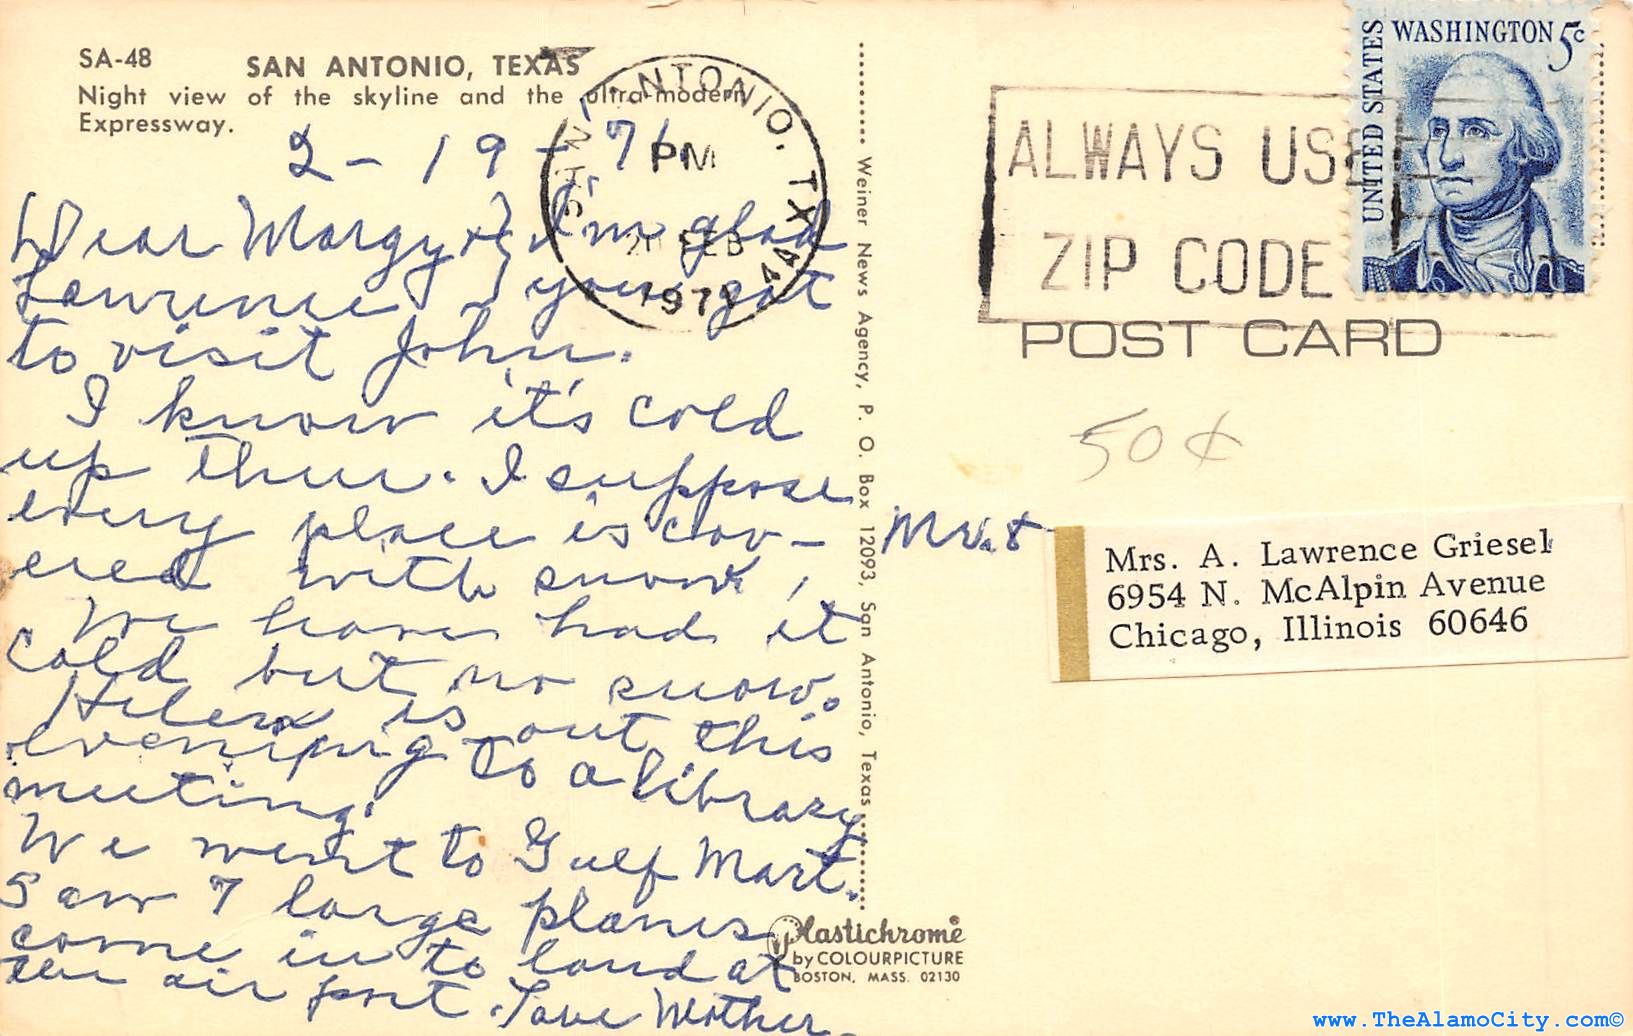 SA-48 SAN ANTONIO, TEXAS
Night view of the skyline and the ultra-modern
Expressway.
2-19-71.
Dear Margy & I'm glad
Lawrence } you got
to visit John.
I know it's cold
up there. I suppose
every place is cov-
ered with snow,
We have had it
cold but no snow.
Helen is out this
evening to a library
meeting.
We went to Gulf Mart.
Saw 7 large planes
come in to land at
the air port. Love Mother
SAN ANTONIO, TX
PM
20 FEB
1971
Weiner News Agency, P. O. Box 12093, San Antonio, Texas
ALWAYS USE
ZIP CODE
UNITED STATES
WASHINGTON 5c
POST CARD
50¢
Mr. &
Mrs. A. Lawrence Griesel
6954 N. McAlpin Avenue
Chicago, Illinois 60646
Plastichrome®
by COLOURPICTURE
BOSTON, MASS. 02130
www.TheAlamoCity.com©